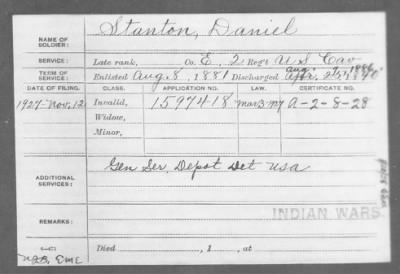 NAME OF SOLDIER: Stanton, Daniel
SERVICE: Late rank, Co. E, 2 Reg't U S Cav
Aug. 7, 1886
TERM OF SERVICE: Enlisted Aug. 8, 1881 Discharged Apr. 25, 1890
DATE OF FILING. CLASS. APPLICATION NO. LAW. CERTIFICATE NO.
1927-Nov. 12 Invalid, 1597418 Mar 3 A-2-8-28
Widow,
Minor,
ADDITIONAL SERVICES: Gen Ser. Depot Det USA
REMARKS: INDIAN WARS.
Died , 1 , at